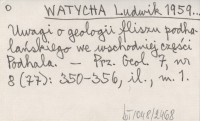 WATYCHA Ludwik 1959...
Uwagi o geologii fliszu podha-
lańskiego we wschodniej części
Podhala. — Prz. Geol 7, nr
8 (77): 350-356, il., m. 1.